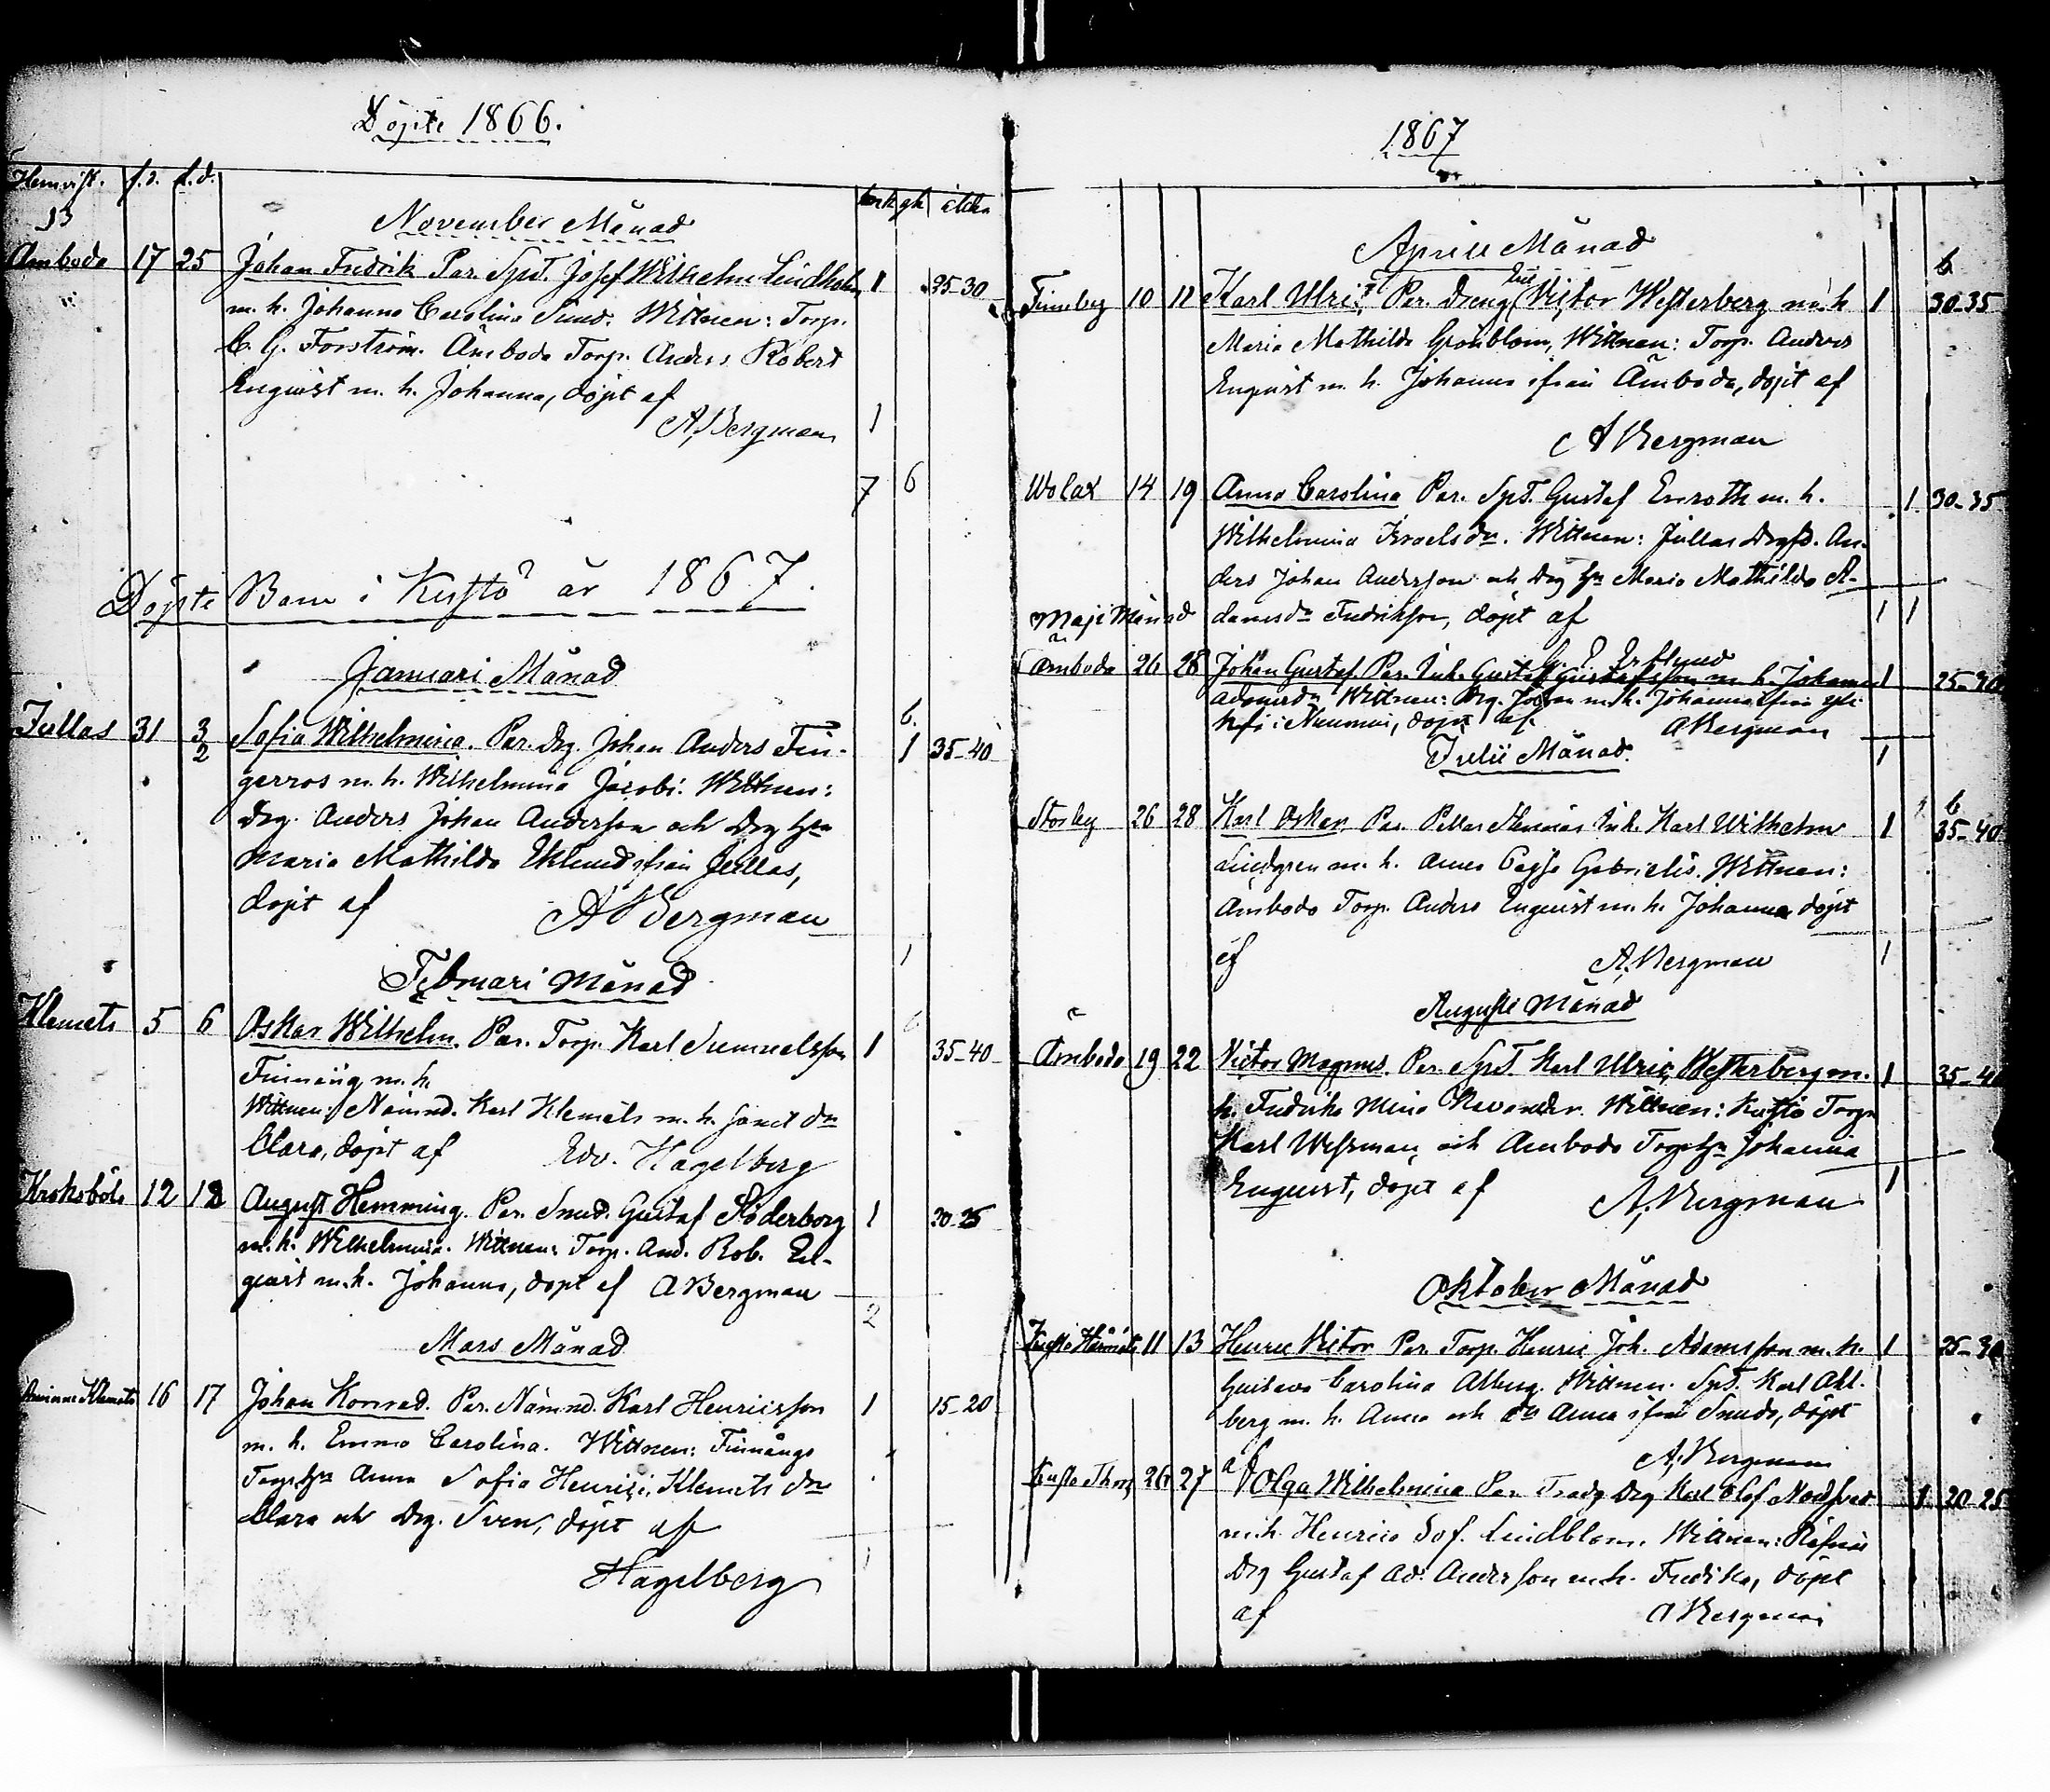 Döpte 1866.
Hemvist. f.d. d.d. mk qk ålder
13
November Månad
Åmboda 17 25 Johan Fredrik Par. Spst. Josef Wilhelm Lindholm 1 25-30
m. h. Johanna Carolina Sund. Wittnen: Torp.
C. G. Forström. Åmboda Torp. Anders Robert
Enqvist m. h. Johanna, döpt af
A, Bergman 1
7 6
Döpte Barn i Kustö år 1867.
Januari Månad
Jullas 31 3/2 Sofia Wilhelmina. Par. Drg. Johan Anders Fin- 1 35-40
gerros m. h. Wilhelmina Jacobs: Wittnen:
Drg. Anders Johan Anderson och Drg hn
Maria Mathilda Eklund ifrån Jullas,
döpt af A Bergman
1
Februari Månad
Klemets 5 6 Oskar Wilhelm. Par. Torp. Karl Sumuelsson 1 35-40
Finnäng m. h.
Wittnen: Nämnd. Karl Klemets m. h. samt dn
Clara, döpt af Edv. Hagelberg
Kroksböle 12 18 August Hemming. Par. Smed. Gustaf Söderborg 1 20-25
m. h. Wilhelmina. Wittnen: Torp. And. Rob. En-
quist m. h. Johanna, döpt af A Bergman
2
Mars Månad
Klemets 16 17 Johan Konrad. Par. Nämnd. Karl Henricsson 1 15-20
m. h. Emma Carolina. Wittnen: Finnängs
Torp. hn Anna Sofia Henrici, Klemets dn
Clara och Drg. Sven, döpt af
Hagelberg
1867
April Månad
6
Finnby 10 11 Karl Ulric, Par. Dreng Victor Westerberg m. h 1 30-35
Maria Mathilda Grönblom, Wittnen: Torp. Anders
Enquist m. h. Johanna ifrån Åmboda, döpt af
A Bergman
Wolax 14 19 Anna Carolina Par. Spst. Gustaf Enroth m. h. 1 30-35
Wilhelmina Israels dr. Wittnen: Jullas Drgs. An-
ders Johan Anderson och Drg hn Maria Mathilda A-
Maji Månad damsdr Fredrikson, döpt af 1 1
Åmboda 26 28 Johan Gustaf Par. Inh. Gustaf Gustafsson m. h. Johanna 1 25-30
Adamsdr Wittnen: Drg. Johan m. h. Johanna ifrån
i Nummi, döpt af. A Bergman
Julii Månad. 1
6
Storby 26 28 Karl Oskar Par. Inh. Karl Wilhelm 1 35-40
Lindgren m. h. Anna Cajsa Gabrielis. Wittnen:
Åmboda Torp. Anders Enquist m. h. Johanna döpt
af A, Bergman 1
Augusti Månad
Åmboda 19 22 Victor Magnus. Par. Spst. Karl Ulric, Westerberg m. 1 35-40
h. Fredrika Mina Wittnen: Kustö Torp
Karl Wesman, och Åmboda Torp. hn Johanna
Enquist, döpt af A, Bergman 1
Oktober Månad
Kustö 11 13 Henric Victor Par. Torp. Henric Joh. Adamsson m. h. 1 25-30
Gustava Carolina Alberg. Wittnen. Spst. Karl Ahl-
berg m. h. Anna och dr Anna ifrån Smeds, döpt
af A, Bergman
Kustö 26 27 Olga Wilhelmina Par. Drg Karl Olof 1 20-25
m. h. Henrica Sof. Lindblom. Wittnen:
Drg Gustaf Ad. Anderson m. h. Fredika, döpt
af A Bergman